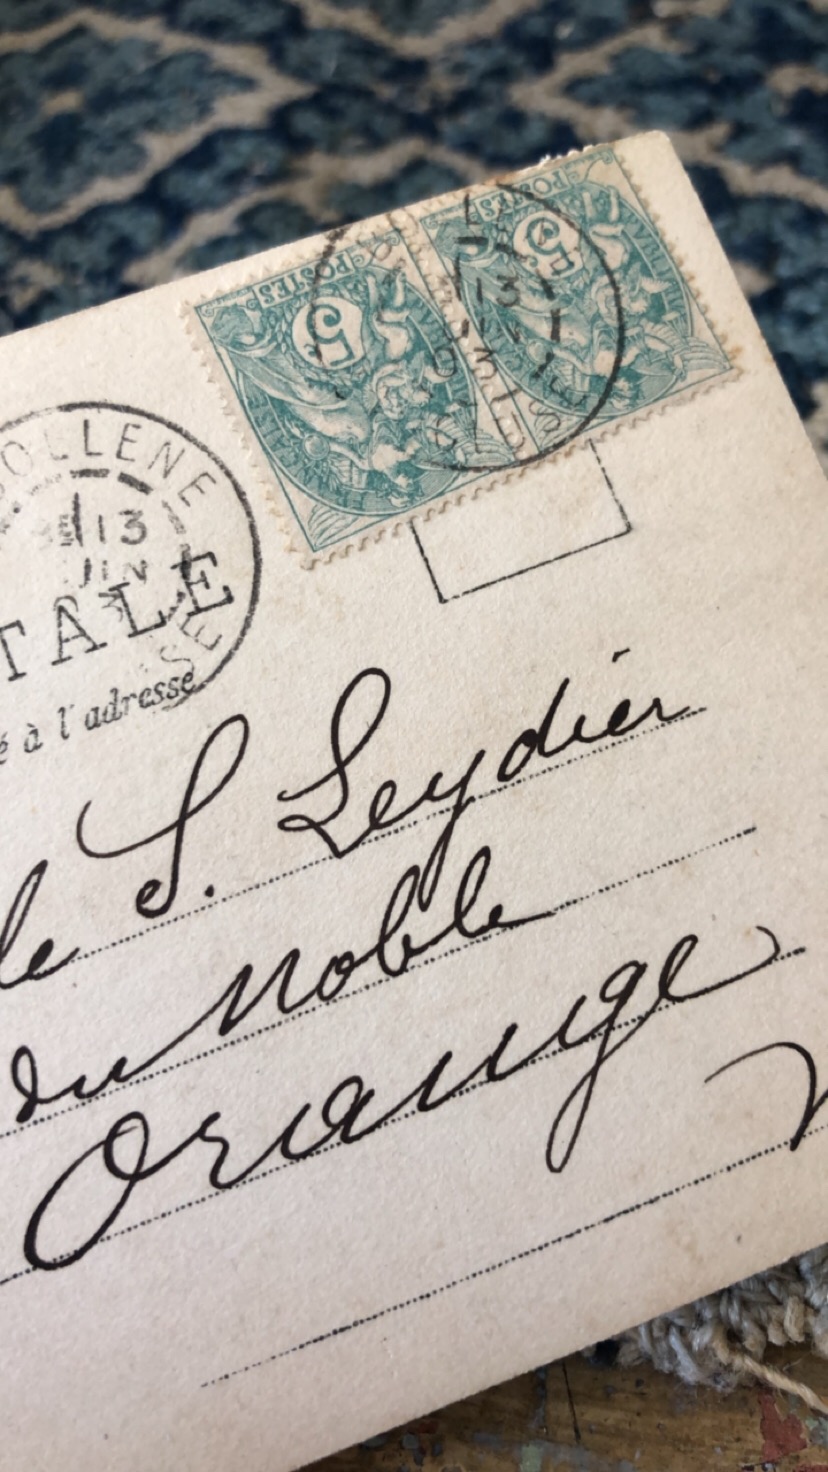 POSTES
5
POSTES
5
OLLENE
13
JUIN
TALE
é à l'adresse
le S. Leydier
du Noble
Orange